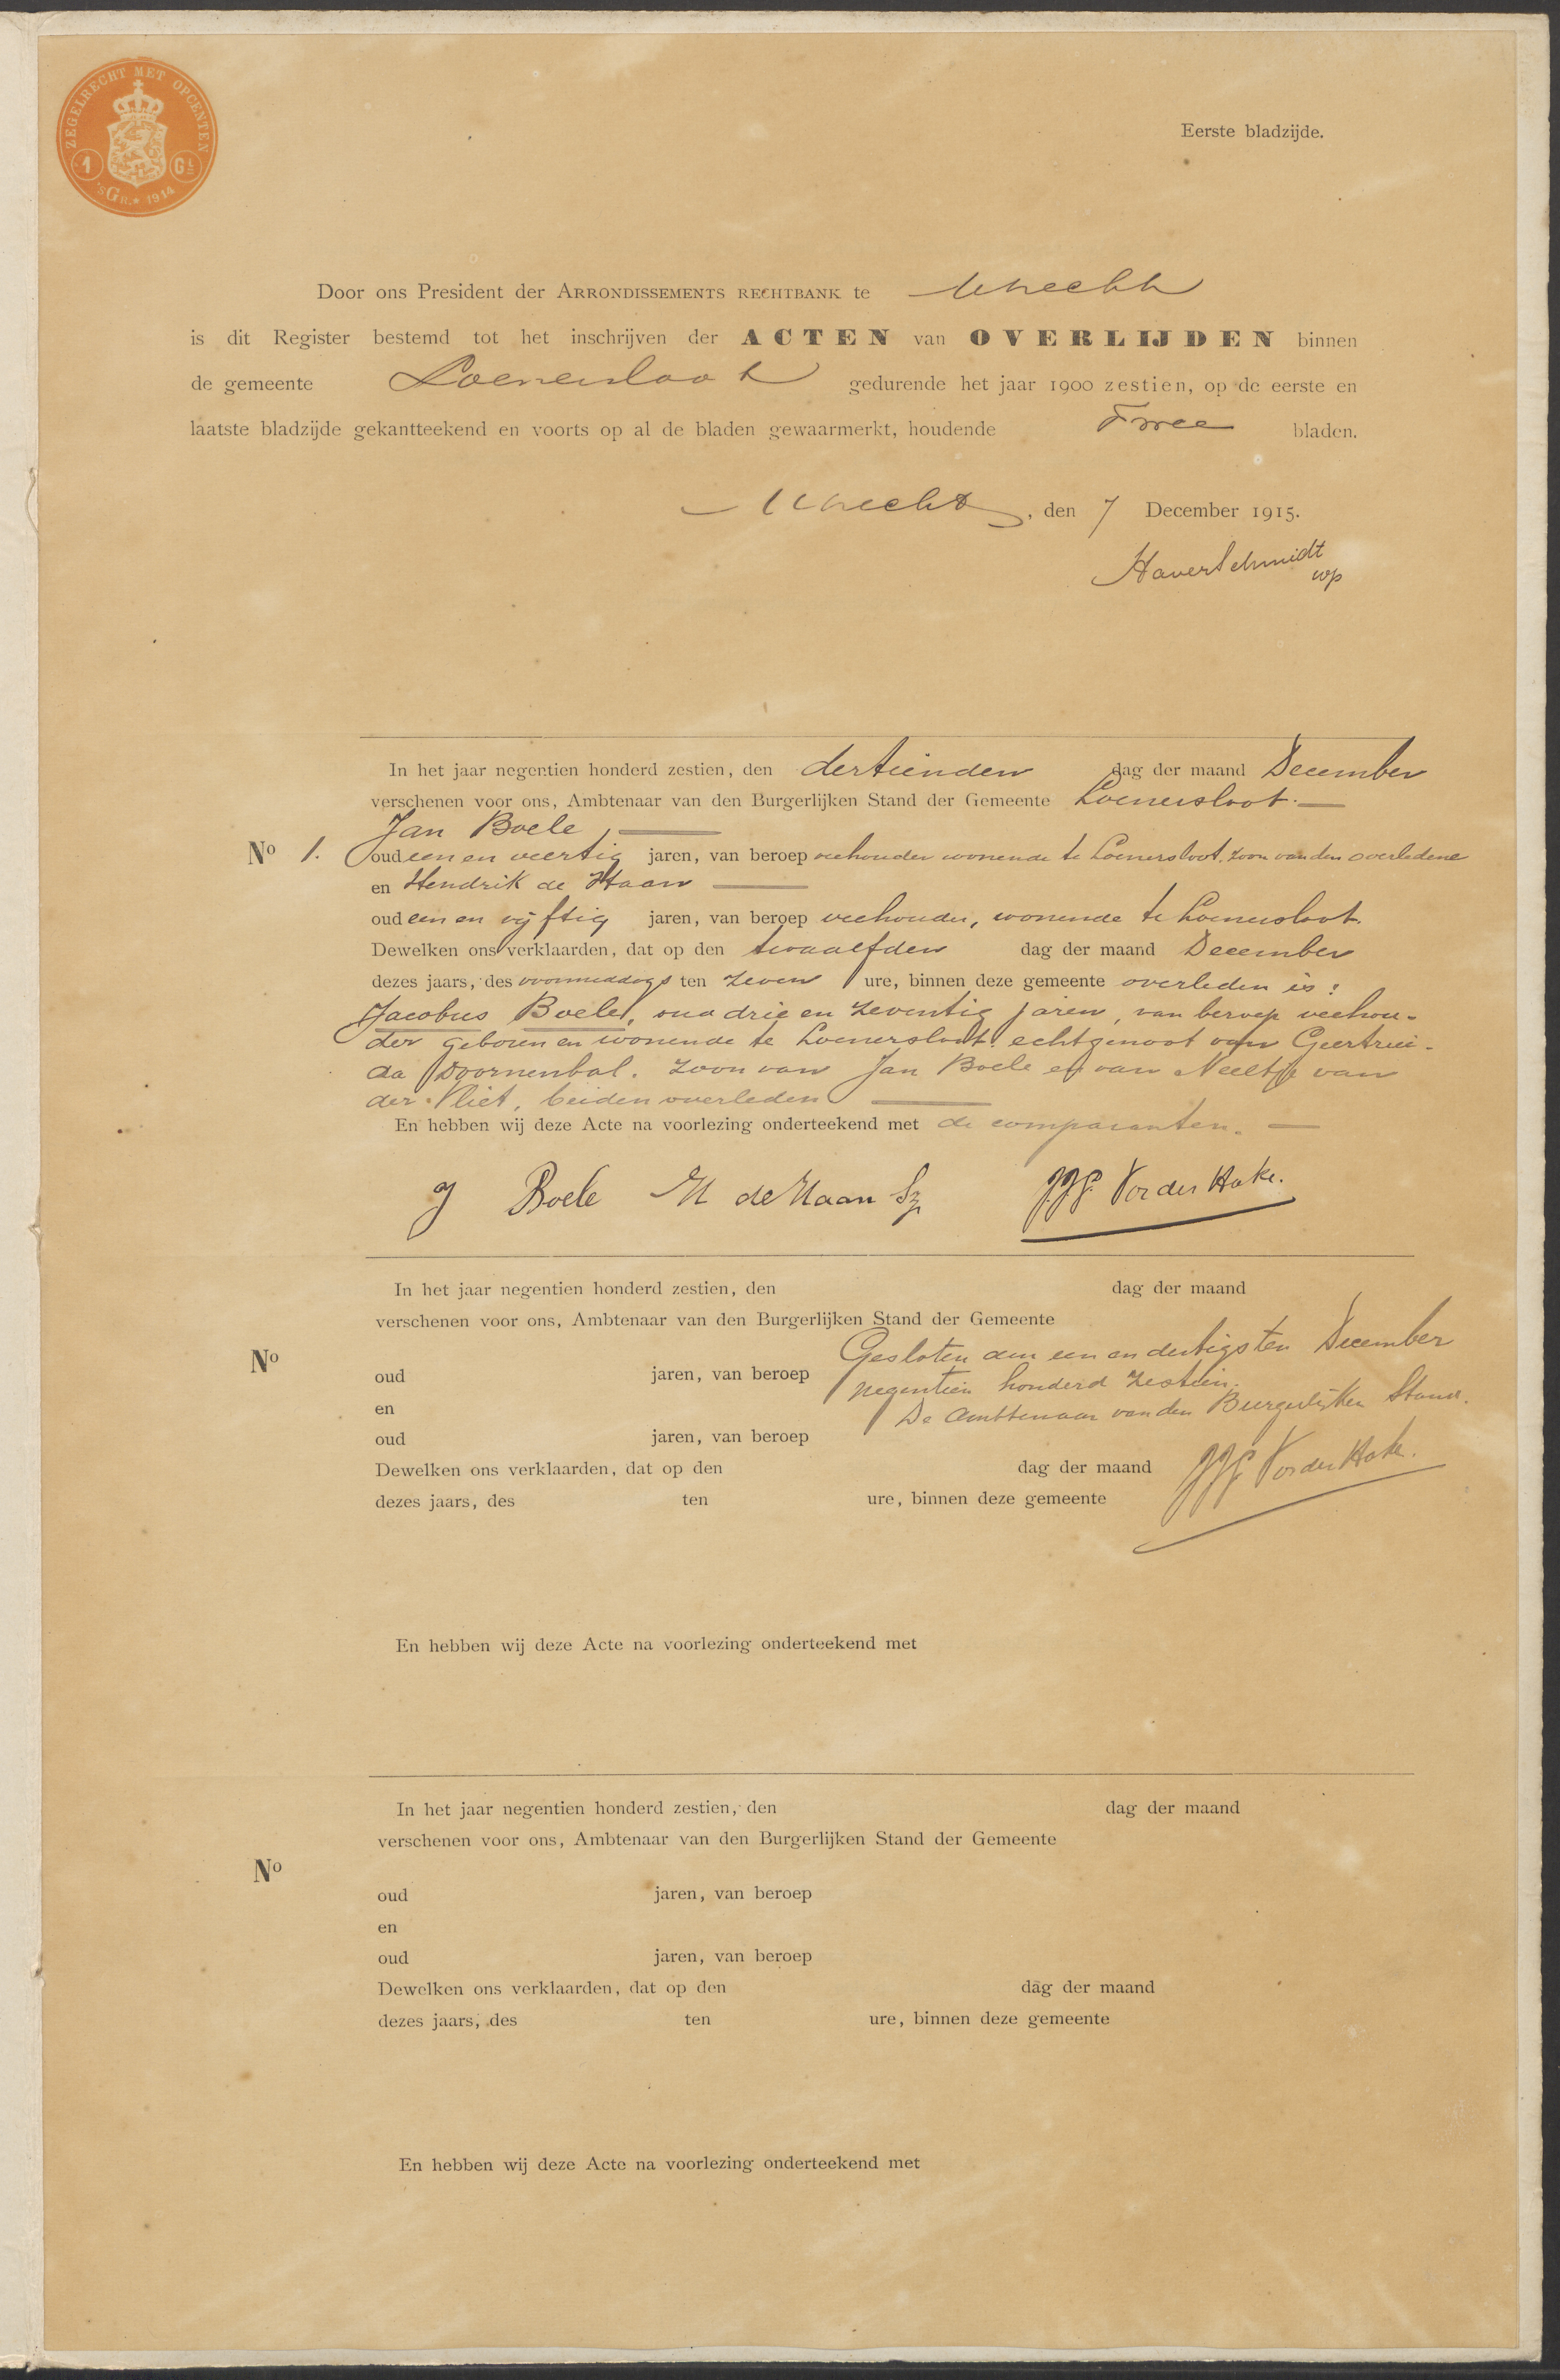 ZEGELRECHT MET OPCENTEN
1 GL
'sGR. 1914
Eerste bladzijde.
Door ons President der ARRONDISSEMENTS RECHTBANK te Utrecht
is dit Register bestemd tot het inschrijven der ACTEN van OVERLIJDEN binnen
de gemeente Loenersloot gedurende het jaar 1900 zestien, op de eerste en
laatste bladzijde gekantteekend en voorts op al de bladen gewaarmerkt, houdende Twee bladen.
Utrecht, den 7 December 1915.
HaverSchmidt
wp
In het jaar negentien honderd zestien, den dertienden dag der maand December
verschenen voor ons, Ambtenaar van den Burgerlijken Stand der Gemeente Loenersloot.
Jan Boele,
No 1. oud een en veertig jaren, van beroep veehouder wonende te Loenersloot, zoon van den overledene
en Hendrik de Haan
oud een en vijftig jaren, van beroep veehouder, wonende te Loenersloot.
Dewelken ons verklaarden, dat op den twaalfden dag der maand December
dezes jaars, des voormiddags ten zeven ure, binnen deze gemeente overleden is:
Jacobus Boele, oud drie en zeventig jaren, van beroep veehou-
der geboren en wonende te Loenersloot. echtgenoot van Geertrui-
da Doornenbal. zoon van Jan Boele en van Neeltje van
der Vliet, beiden overleden
En hebben wij deze Acte na voorlezing onderteekend met de comparanten.
J Boele H de Haan Sz JJG Vorder Hake.
In het jaar negentien honderd zestien, den dag der maand
verschenen voor ons, Ambtenaar van den Burgerlijken Stand der Gemeente
Gesloten den een en dertigsten December
No
oud jaren, van beroep
negentien honderd zestien.
en
De Ambtenaar van den Burgerlijken Stand.
oud jaren, van beroep
Dewelken ons verklaarden, dat op den dag der maand
JJG Vorder Hake.
dezes jaars, des ten ure, binnen deze gemeente
En hebben wij deze Acte na voorlezing onderteekend met
In het jaar negentien honderd zestien, den dag der maand
verschenen voor ons, Ambtenaar van den Burgerlijken Stand der Gemeente
No
oud jaren, van beroep
en
oud jaren, van beroep
Dewelken ons verklaarden, dat op den dag der maand
dezes jaars, des ten ure, binnen deze gemeente
En hebben wij deze Acte na voorlezing onderteekend met